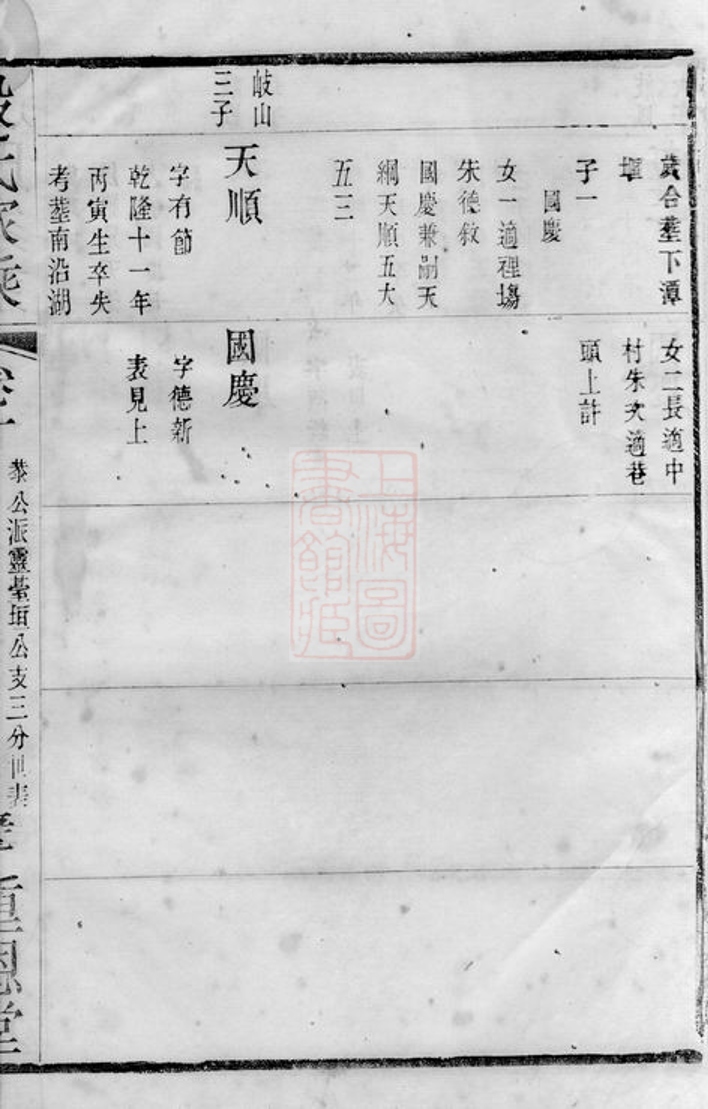 歲合塟下潭
墠
子一
國慶
女一適裡塲
朱德敘
國慶兼嗣天
綱天順五大
五三
女二長適中
村朱次適巷
頭上許
岐山
三子
天順
字有節
乾隆十一年
丙寅生卒失
考塟南沿湖
國慶
字德新
表見上
上海圖
書館藏
公派靈臺垣公支三分世表
重恩堂